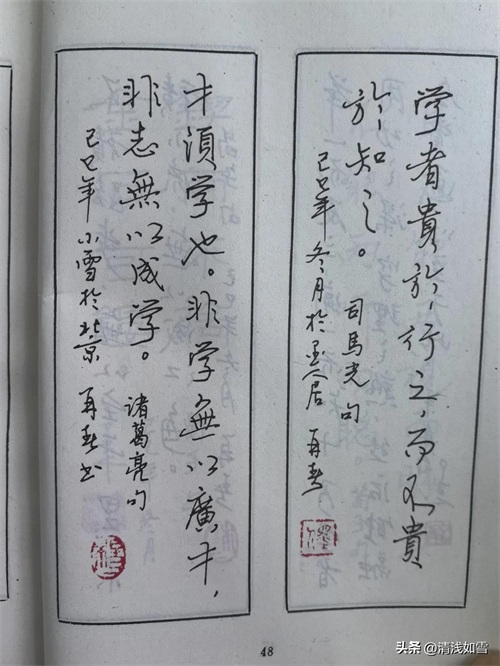 学者貴於行之，而不貴
於知之。司馬光句
己巳年冬月於墨人居 再春
才須学也。非学無以廣才，
非志無以成学。諸葛亮句
己巳年小雪於北京 再春书
48
头条 @清浅如雪